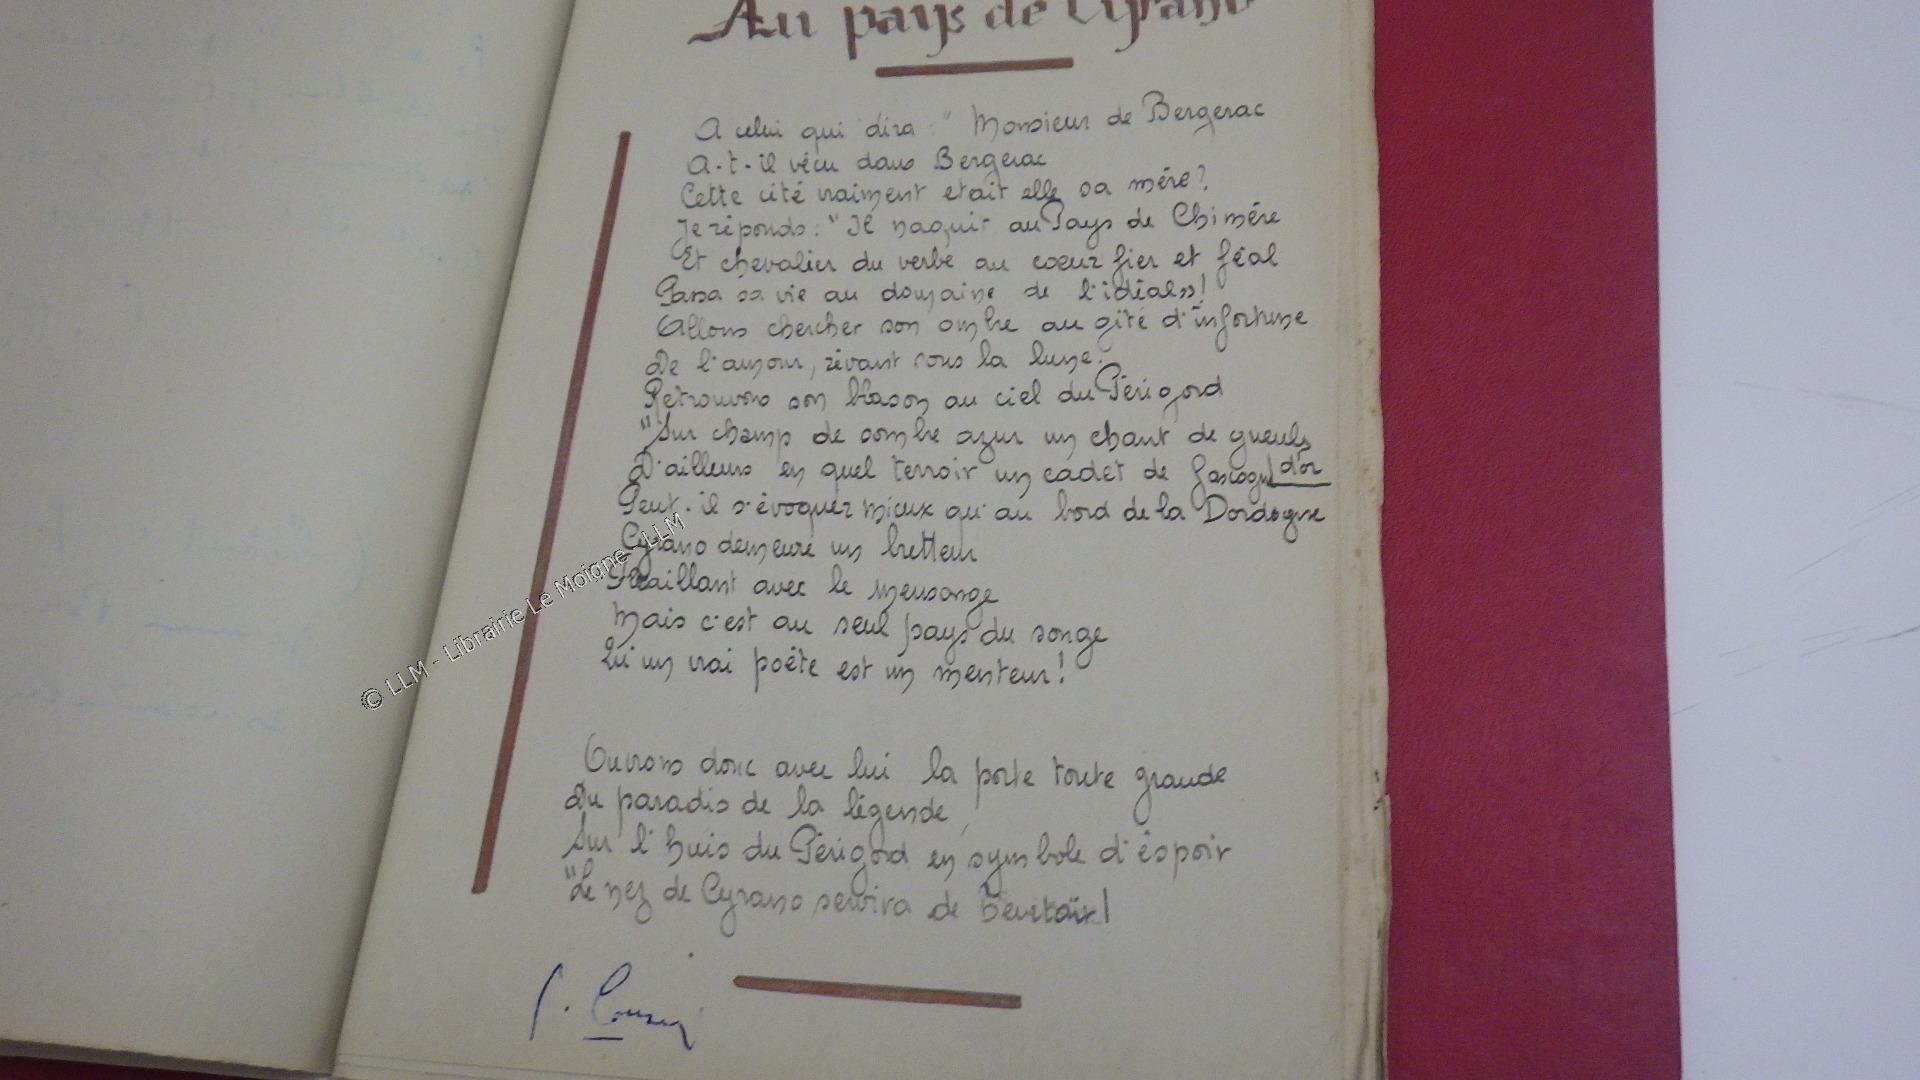 Au pays de Cyrano
A celui qui dira : " Monsieur de Bergerac
A-t-il vécu dans Bergerac
Cette cité vraiment etait elle sa mére?
Je réponds : "Il naquit au Pays de Chimére
Et chevalier du verbe au coeur fier et féal
Passa sa vie au domaine de l'idéal"!
Allons chercher son ombre au gîte d'infortune
De l'amour, rêvant sous la lune.
Retrouvons son blason au ciel du Périgord
"Sur champ de sombre azur un chant de gueuls
d'or
D'ailleurs en quel terroir un cadet de Gascogne
Peut-il s'évoquer mieux qu'au bord de la Dordogne
Cyrano demeure un bretteur
Ferraillant avec le mensonge
Mais c'est au seul pays du songe
Qu'un vrai poête est un menteur!
Ouvrons donc avec lui la porte toute grande
Du paradis de la légende,
Sur l'huis du Périgord en symbole d'éspoir
"Le nez de Cyrano servira de heurtoir!
© LLM - Librairie Le Moigne - LLM